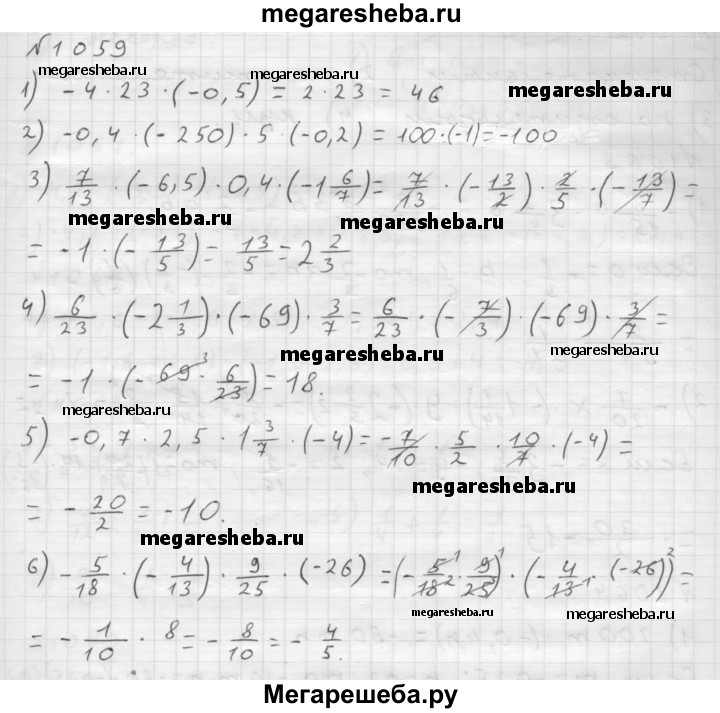 megaresheba.ru
№1059
megaresheba.ru
1) -4·23·(-0,5) = 2·23 = 46
megaresheba.ru
2) -0,4·(-250)·5·(-0,2) = 100·(-1) = -100
megaresheba.ru
3) 7/13 · (-6,5) · 0,4 · (-1 6/7) = 7/13 · (-13/2) · 2/5 · (-13/7) =
megaresheba.ru
megaresheba.ru
= -1 · (-13/5) = 13/5 = 2 2/3
4) 6/23 · (-2 1/3) · (-69) · 3/7 = 6/23 · (-7/3) · (-69) · 3/7 =
megaresheba.ru
megaresheba.ru
= -1 · (-69 3 · 6/23) = 18.
megaresheba.ru
5) -0,7 · 2,5 · 1 3/7 · (-4) = -7/10 · 5/2 · 10/7 · (-4) =
megaresheba.ru
= -20/2 = -10.
megaresheba.ru
megaresheba.ru
6) -5/18 · (-4/13) · 9/25 · (-26) = (-5 1/18 2 · 9 1/25 5) · (-4/13 1 · (-26) 2) =
megaresheba.ru
megaresheba.ru
= -1/10 · 8 = -8/10 = -4/5.
Мегарешеба.ру